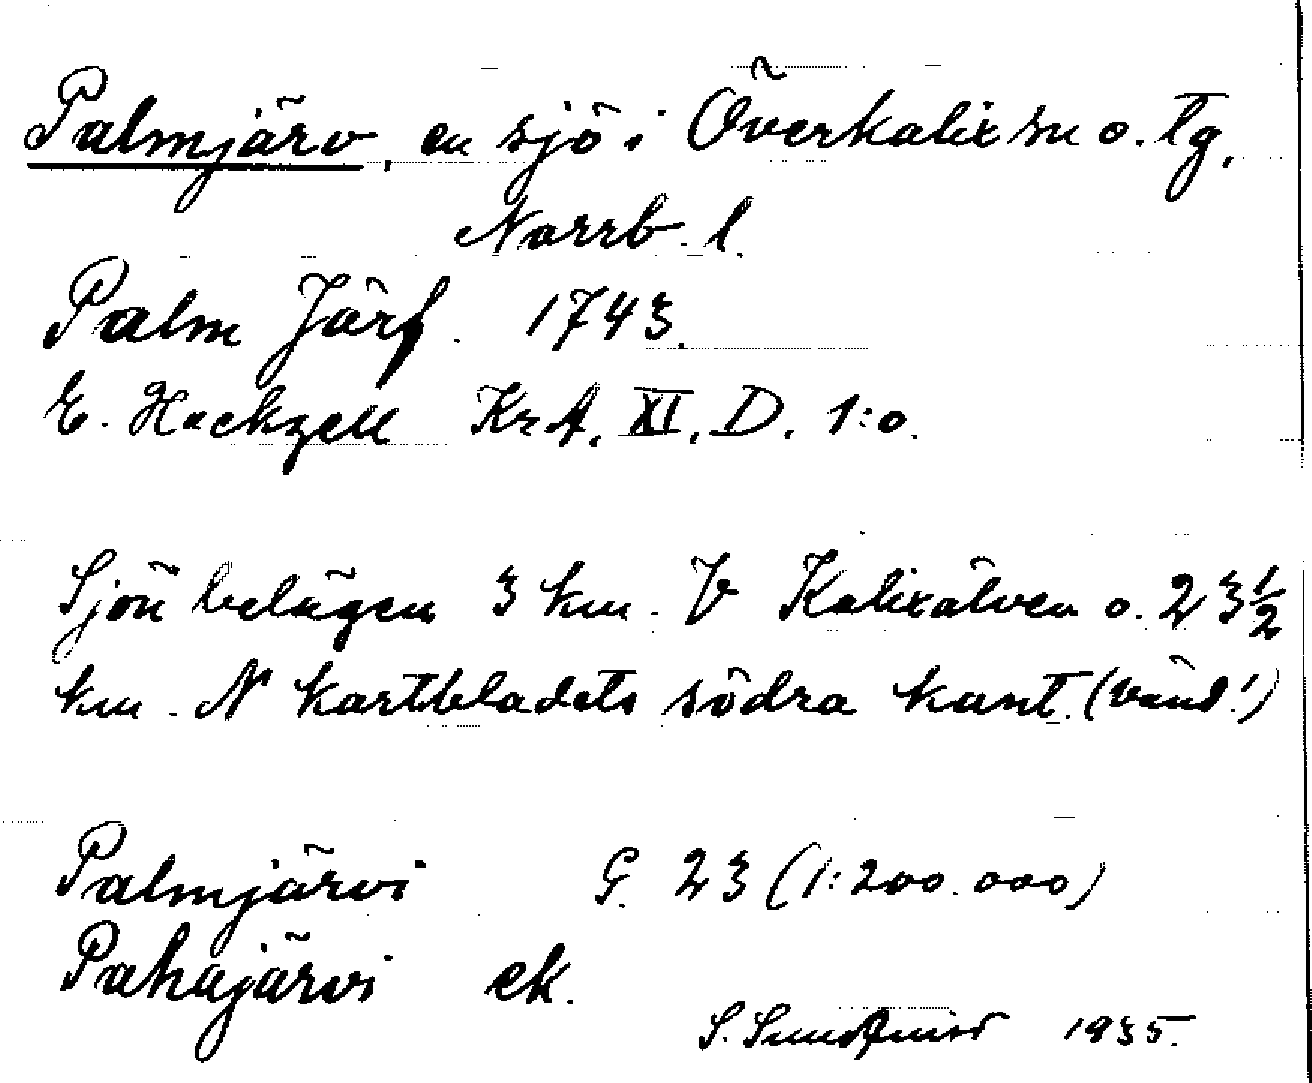 Palmjärv, en sjö i Överkalix sn o. tg,
Norrb. l.
Palm Järf. 1743.
E. Hackzell KrA. XI. D. 1:o.
Sjön belägen 3 km. V Kalixälven o. 23 1/2
km. N kartbladets södra kant. (vänd!)
Palmjärvi G. 23 (1:200.000)
Pahajärvi ek.
S. 1935.